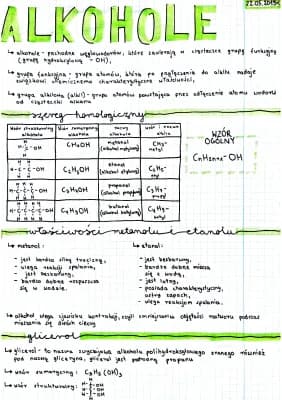 22.05.2019r
ALKOHOLE
↳ alkohole - pochodne węglowodorów, które zawierają w cząsteczce grupę funkcyjną
(grupę hydroksylową - OH),
↳ grupa funkcyjna - grupa atomów, która po przyłączeniu do alkilu nadaje
związkowi chemicznemu charakterystyczne właściwości,
↳ grupa alkilowa (alkil) - grupa atomów powstająca przez odjęcie atomu wodoru
od cząsteczki alkanu
szereg homologiczny
wzór strukturalny alkoholu | wzór sumaryczny | nazwa alkoholu | wzór i nazwa alkilu
CH₃OH | metanol (alkohol metylowy) | CH₃- metyl
C₂H₅OH | etanol (alkohol etylowy) | C₂H₅- etyl
C₃H₇OH | propanol (alkohol propylowy) | C₃H₇- propyl
C₄H₉OH | butanol (alkohol butylowy) | C₄H₉- butyl
WZÓR
OGÓLNY
CnH2n+1-OH
właściwości metanolu i etanolu
↳ metanol:
- jest bardzo silną trucizną,
- ulega reakcji spalania,
- jest bezbarwny,
- bardzo dobrze rozpuszcza
się w wodzie.
↳ etanol:
- jest bezbarwny,
- bardzo dobrze miesza
się z wodą,
- jest lotny,
- posiada charakterystyczny,
ostry zapach,
- ulega reakcjom spalania.
↳ alkohol ulega zjawisku kontrakcji, czyli zmniejszeniu objętości roztworu podczas
mieszania się dwóch cieczy
glicerol
↳ glicerol - to nazwa zwyczajowa alkoholu polihydroksylowego znanego również
pod nazwą gliceryna, glicerol jest pochodną propanu
↳ wzór sumaryczny: C₃H₅(OH)₃
↳ wzór strukturalny: